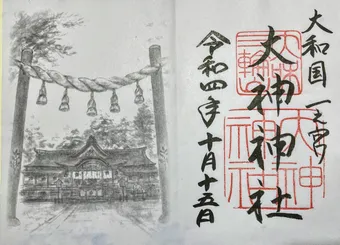 大和国 一之宮
大神神社
令和四年 十月十五日
大神
神社